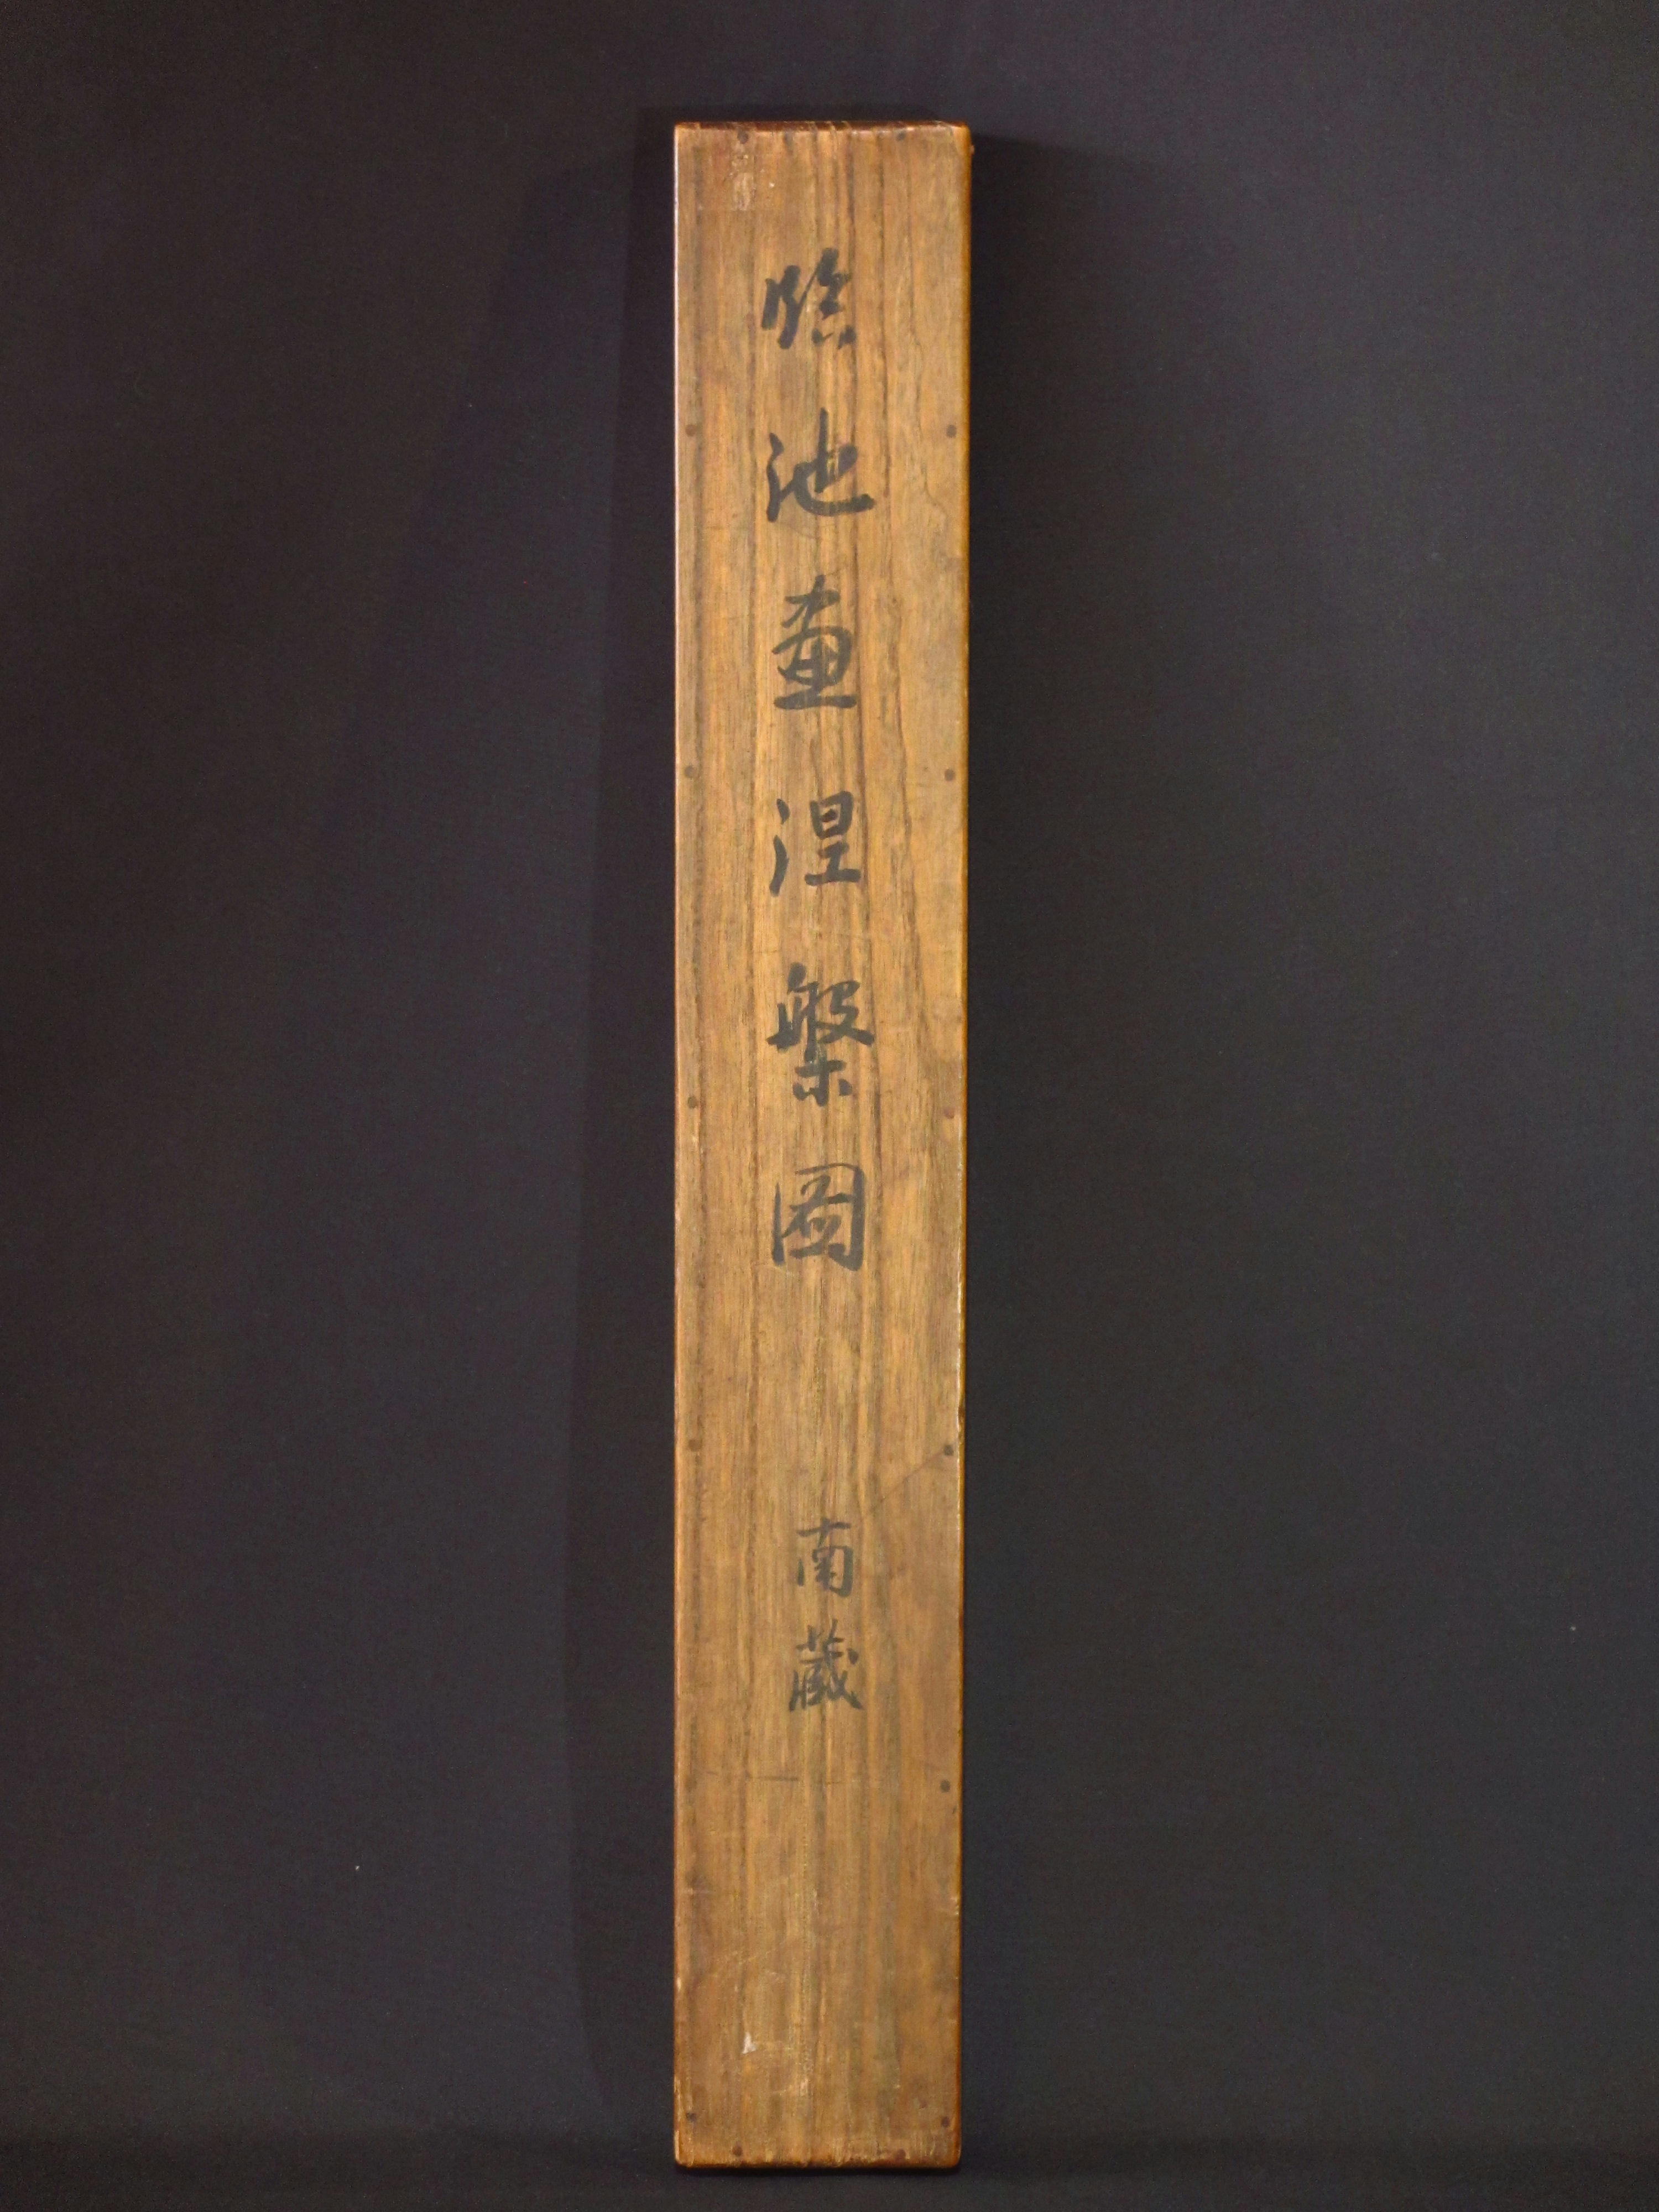 臨池畫涅槃圖
南藏